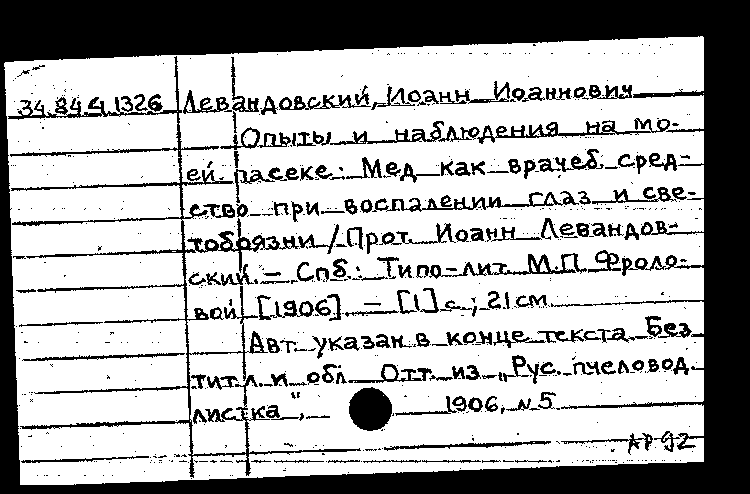 34.84.4.1326 Левандовский, Иоанн Иоаннович
Опыты и наблюдения на мо-
ей пасеке: Мед как врачеб. сред-
ство при воспалении глаз и све-
тобоязни / Прот. Иоанн Левандов-
ский. – Спб.: Типо-лит. М.П. Фроло-
вой, [1906]. – [1] с.; 21 см
Авт. указан в конце текста. Без
тит. л. и обл. Отт. из „Рус. пчеловод.
листка", 1906, N 5
АР 92